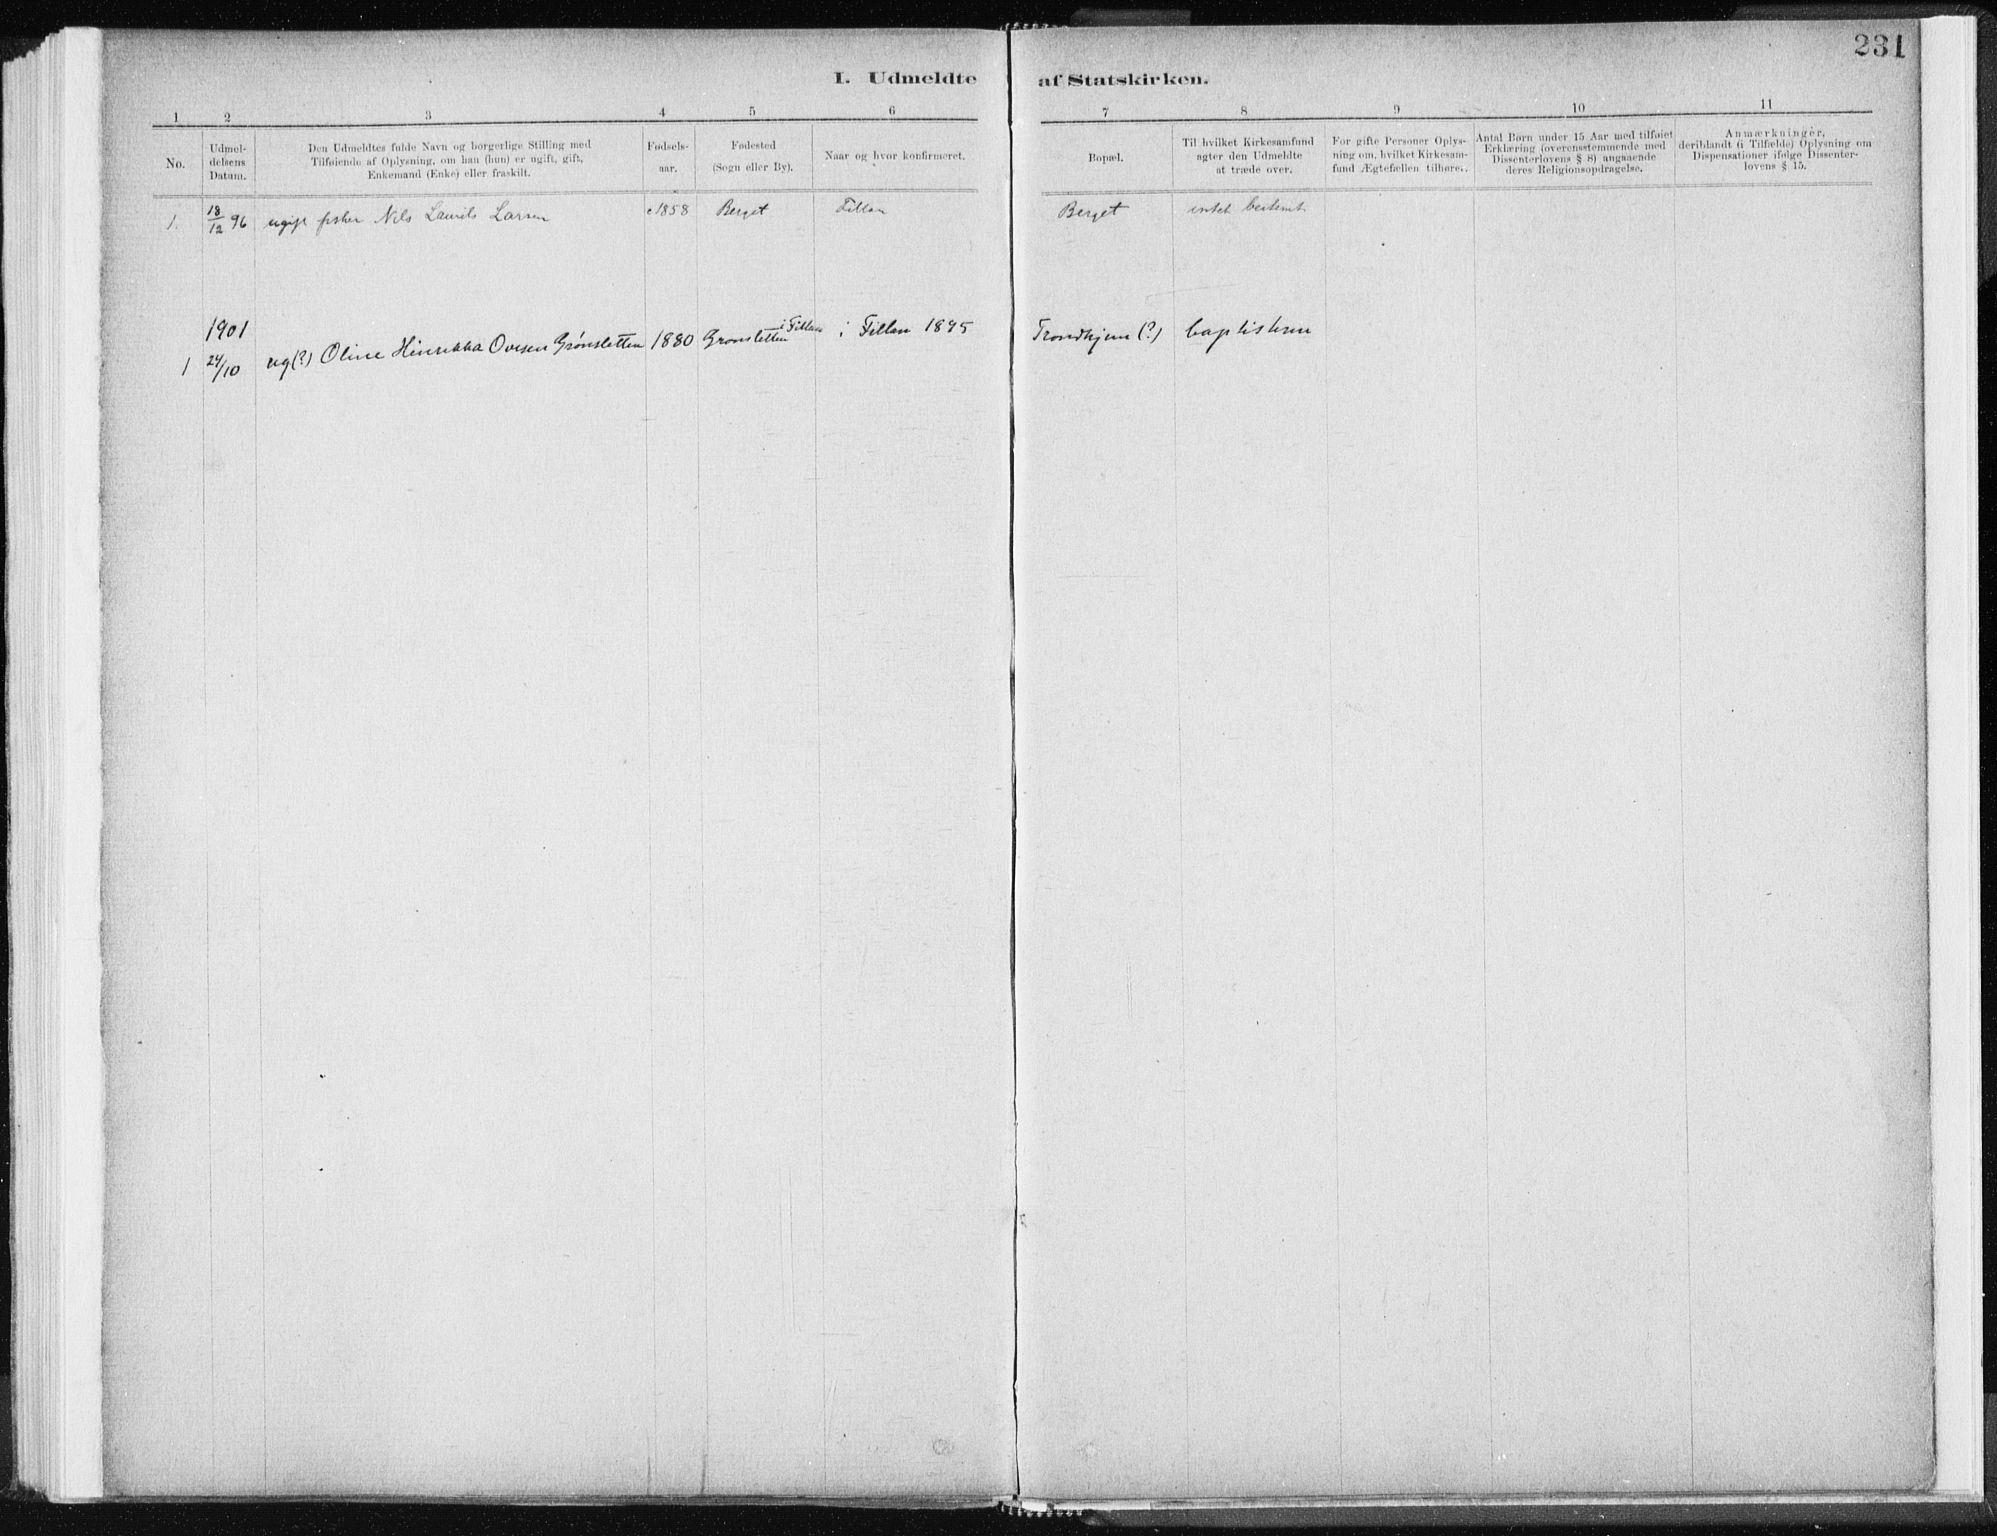 231
I. Udmeldte af Statskirken.
1 2 3 4 5 6 7 8 9 10 11
No.
Udmel-
delsens
Datum.
Den Udmeldtes fulde Navn og borgerlige Stilling med
Tilføiende af Oplysning, om han (hun) er ugift, gift,
Enkemand (Enke) eller fraskilt.
Fødsels-
aar.
Fødested
(Sogn eller By).
Naar og hvor konfirmeret.
Bopæl.
Til hvilket Kirkesamfund
agter den Udmeldte
at træde over.
For gifte Personer Oplys-
ning om, hvilket Kirkesam-
fund Ægtefællen tilhører.
Antal Børn under 15 Aar med tilføiet
Erklæring (overensstemmende med
Dissenterlovens § 8) angaaende
deres Religionsopdragelse.
Anmærkninger,
deriblandt (i Tilfælde) Oplysning om
Dispensationer ifølge Dissenter-
lovens § 15.
1. 18/12 96 ugift fisker Nils Laurits Larsen c1858 Berget Fillan Berget intet bestemt
1901
1 24/10 ug(?) Oline Hinrikka Ovesen Grønsletten 1880 Grønsletten i Fillan i Fillan 1895 Trondhjem (?) baptisterne